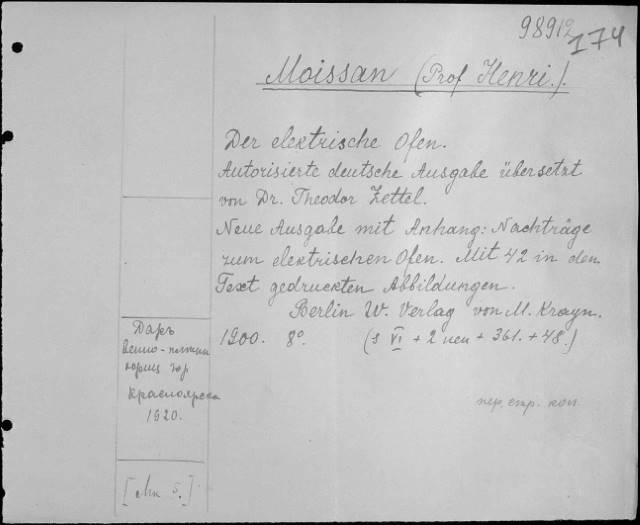 98912
174
Moissan (Prof Henri.).
Der elektrische Ofen.
Autorisierte deutsche Ausgabe übersetzt
von Dr. Theodor Zettel.
Neue Ausgabe mit Anhang: Nachträge
zum elektrischen Ofen. Mit 42 in den
Text gedruckten Abbildungen.
Berlin W. Verlag von M. Krayn.
1900. 8°. (s VI + 2 neu + 361. + 48.)
Даръ
Красноярска
1920.
пер. стр. коп